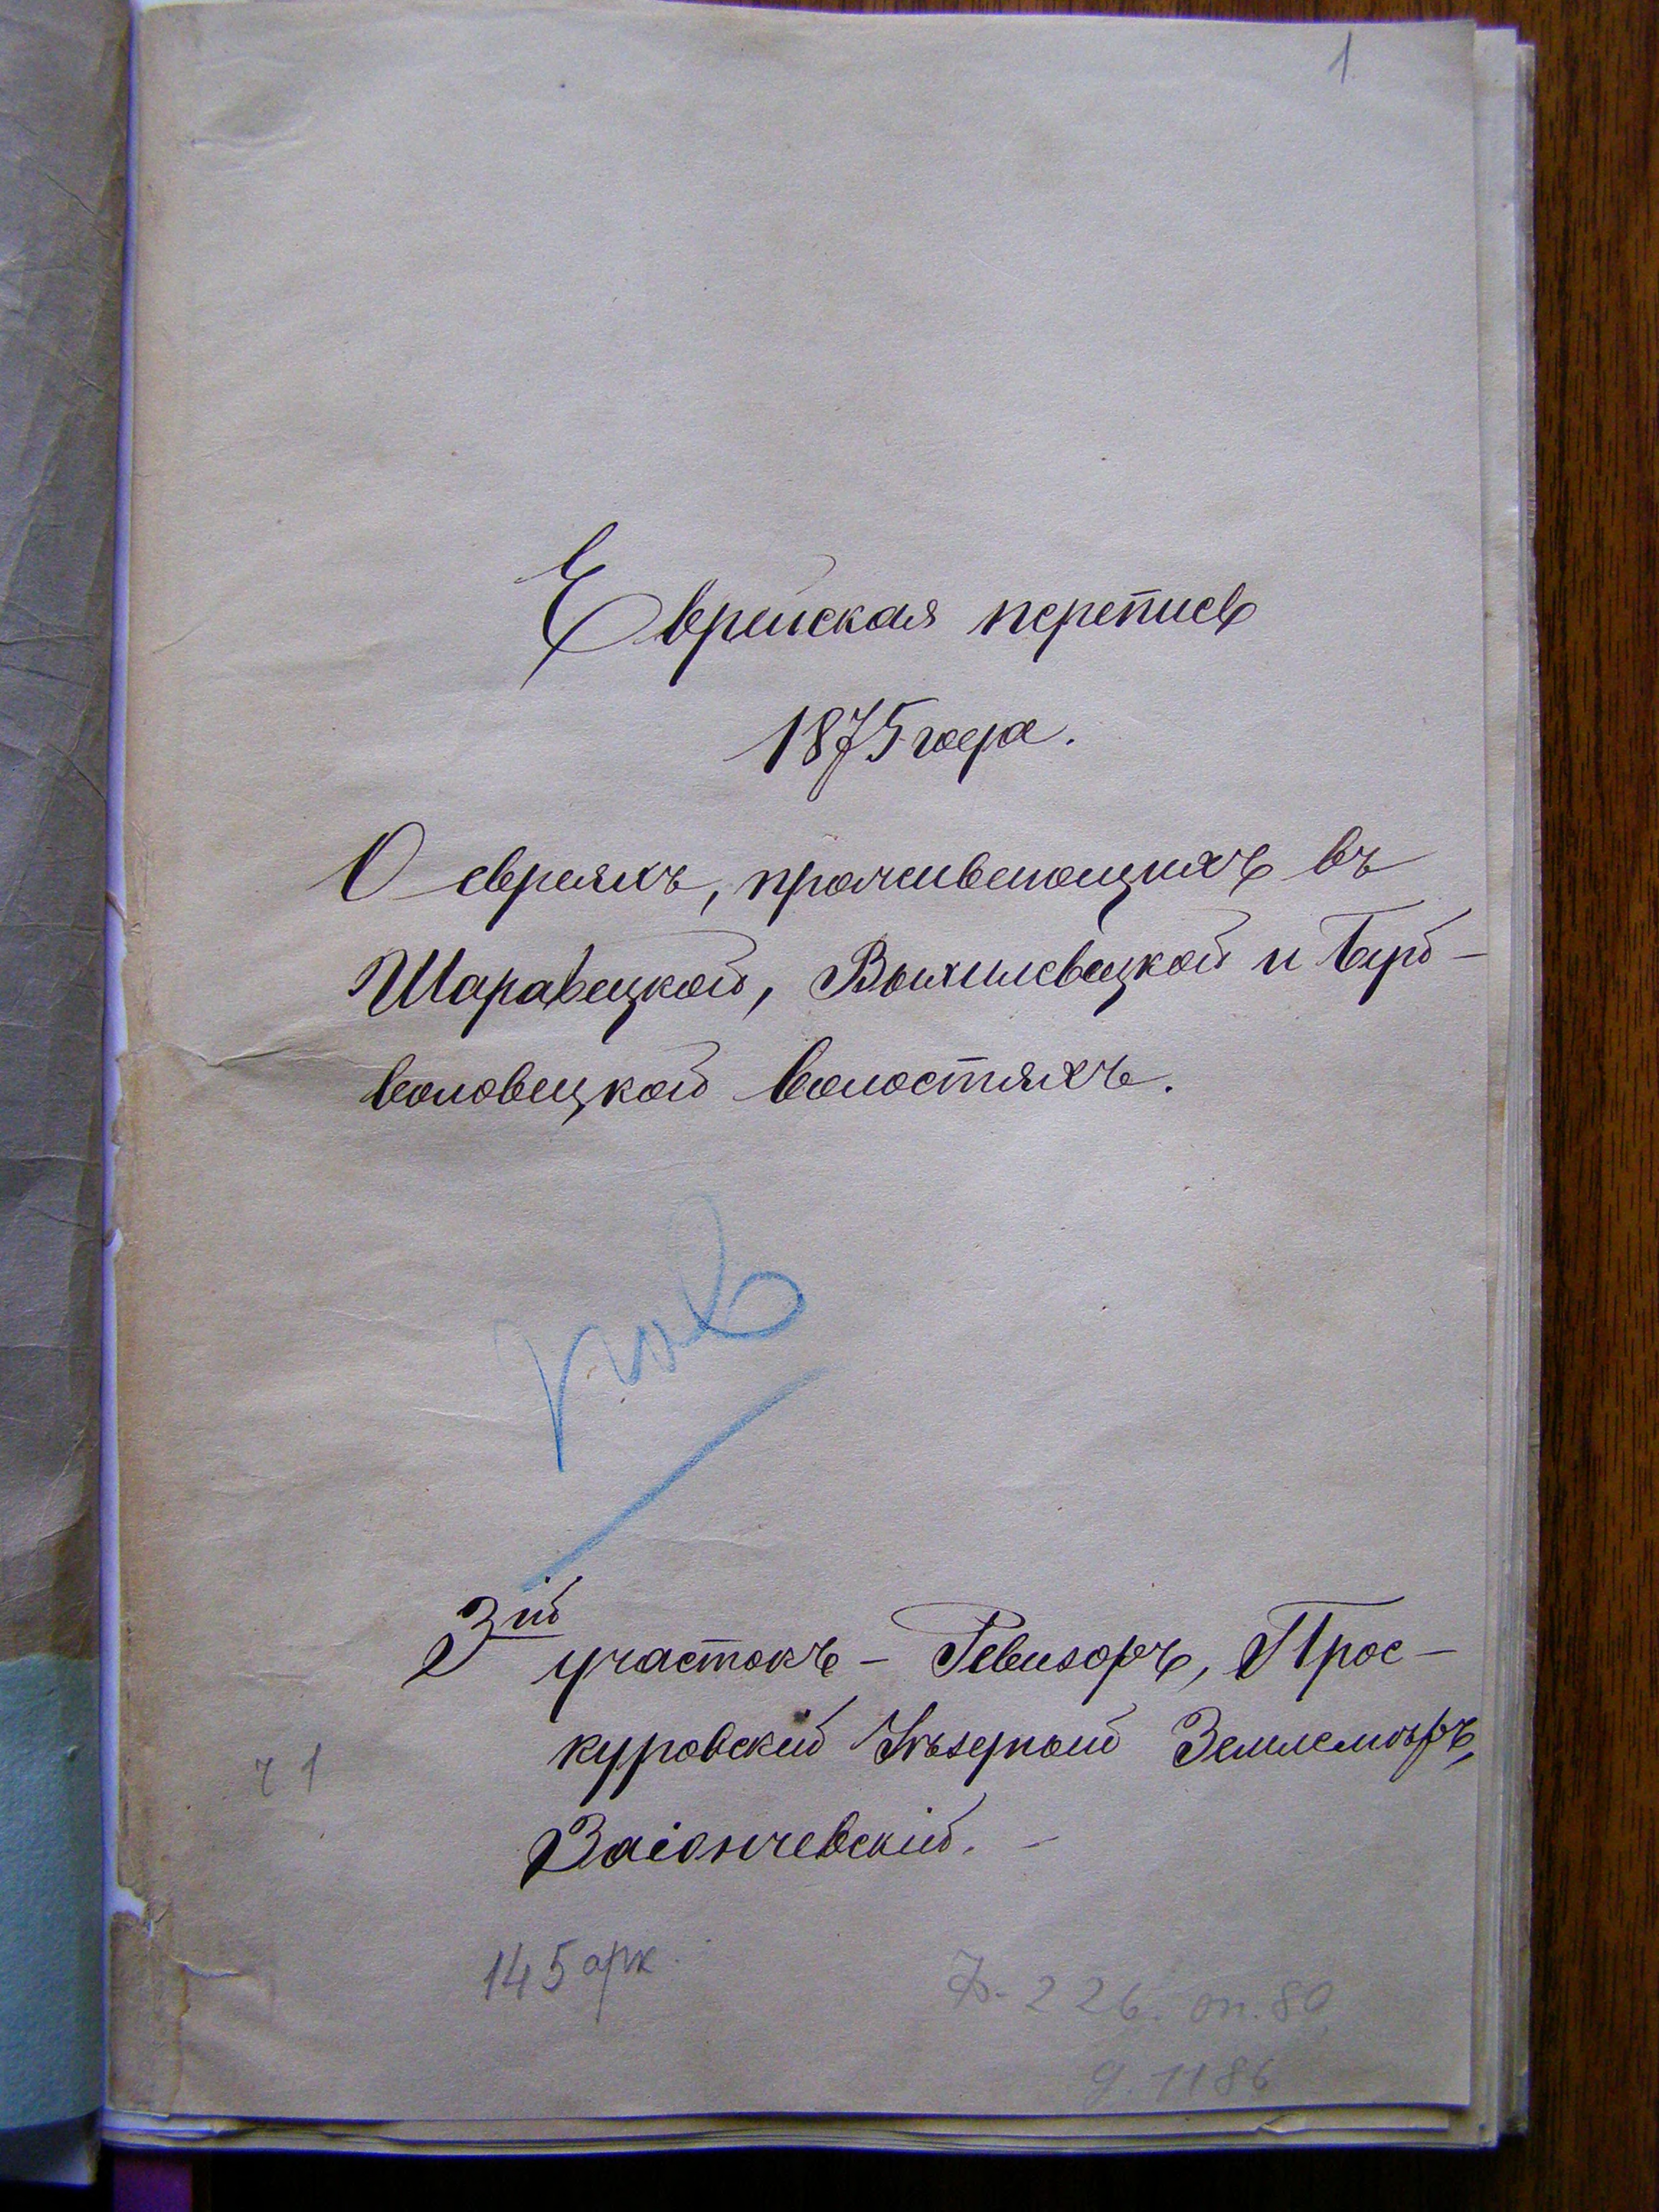 1
Еврейская перепись
1875 года.
О евреяхъ, проживающихъ въ
Шаравецкой, Выхилевецкой и Верб-
воловецкой волостяхъ.
3ій участокъ – Ревизоръ, Прос-
куровскій Уѣздный Землемѣръ,
Заіончевскій. –
ч 1
145 арк.
Ф. 226. оп. 80
д. 1186